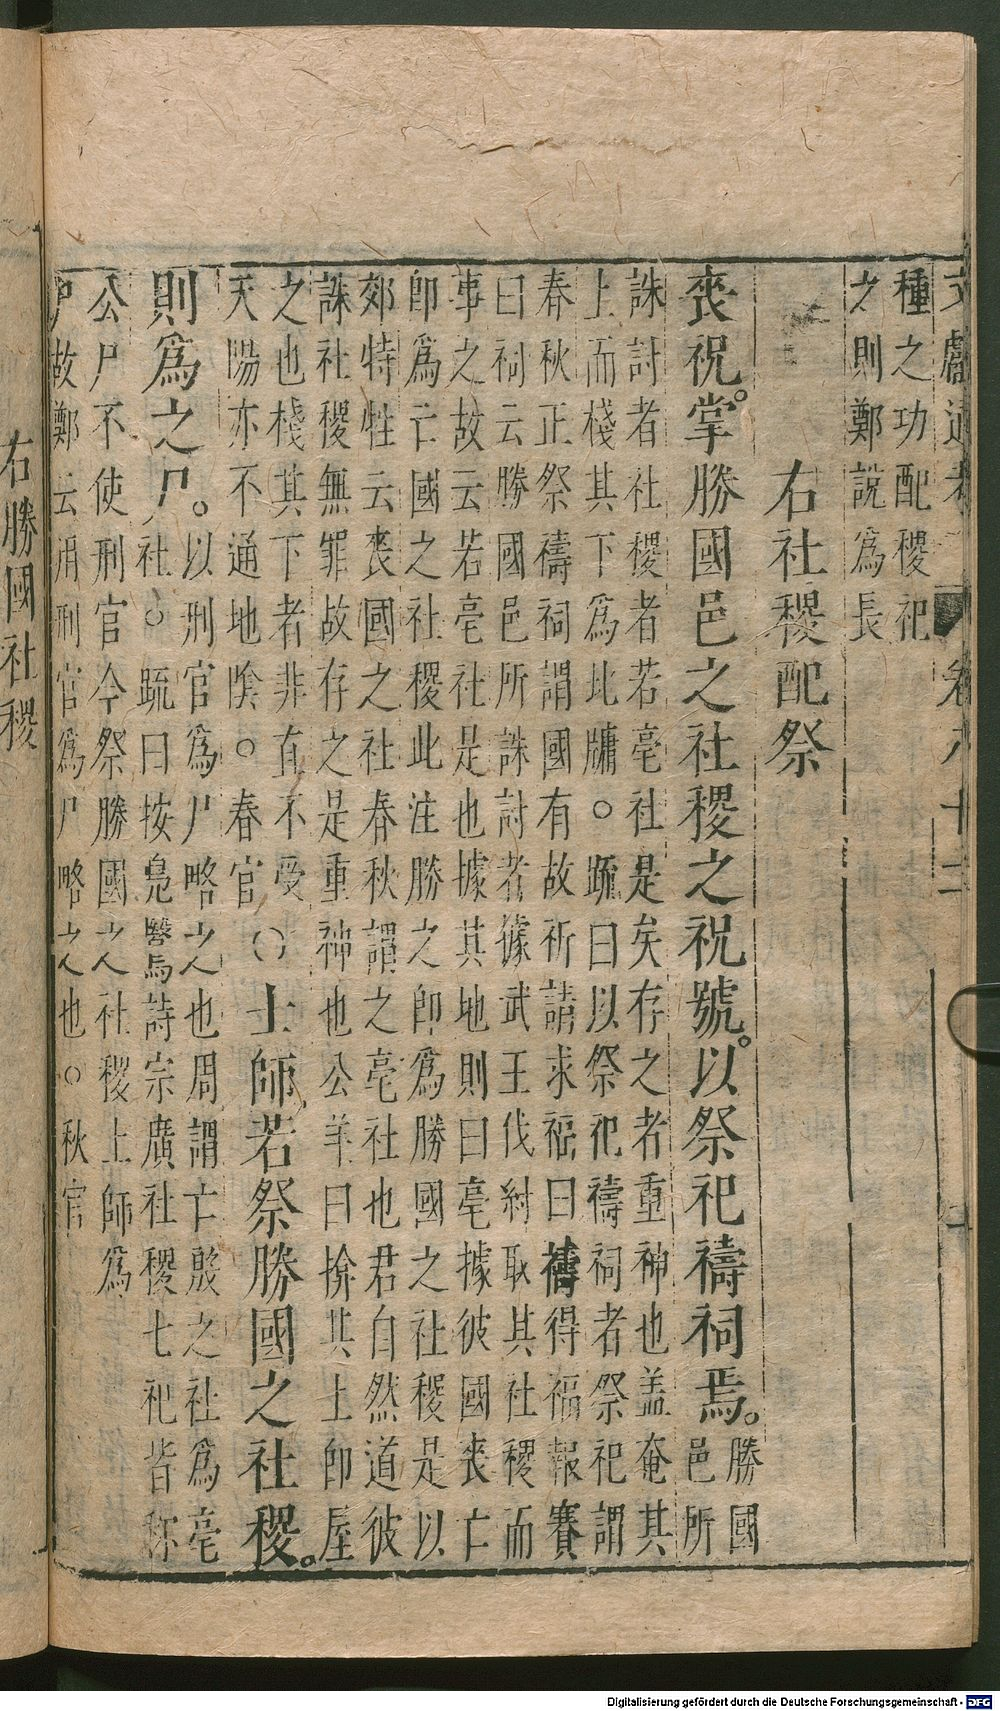 文獻通考 卷八十二 十
種之功配稷祀
之則鄭說爲長
右社稷配祭
喪祝掌勝國邑之社稷之祝號。以祭祀禱祠焉。勝國
邑所
誅討者社稷者若亳社是矣存之者重神也盖奄其
上而棧其下爲此牗。䟽曰以祭祀禱祠者祭祀謂
春秋正祭禱祠謂國有故祈請求福曰禱得福報賽
曰祠云勝國邑所誅討者據武王伐紂取其社稷而
事之故云若亳社是也據其地則曰亳據彼國喪亡
卽爲亡國之社稷此注勝之卽爲勝國之社稷是以
郊特牲云喪國之社春秋謂之亳社也君自然道彼
誅社稷無罪故存之是重神也公羊曰揜其上卽屋
之也棧其下者非直不受
天陽亦不通地隂。春官
○士師若祭勝國之社稷。
則爲之尸。
以刑官爲尸略之也周謂亡殷之社爲亳
社。疏曰按鳧鷖詩宗廣社稷七祀皆稱
公尸不使刑官今祭勝國之社稷士師爲
尸故鄭云用刑官爲尸略之也。秋官
右勝國社稷
Digitalisierung gefördert durch die Deutsche Forschungsgemeinschaft - DFG